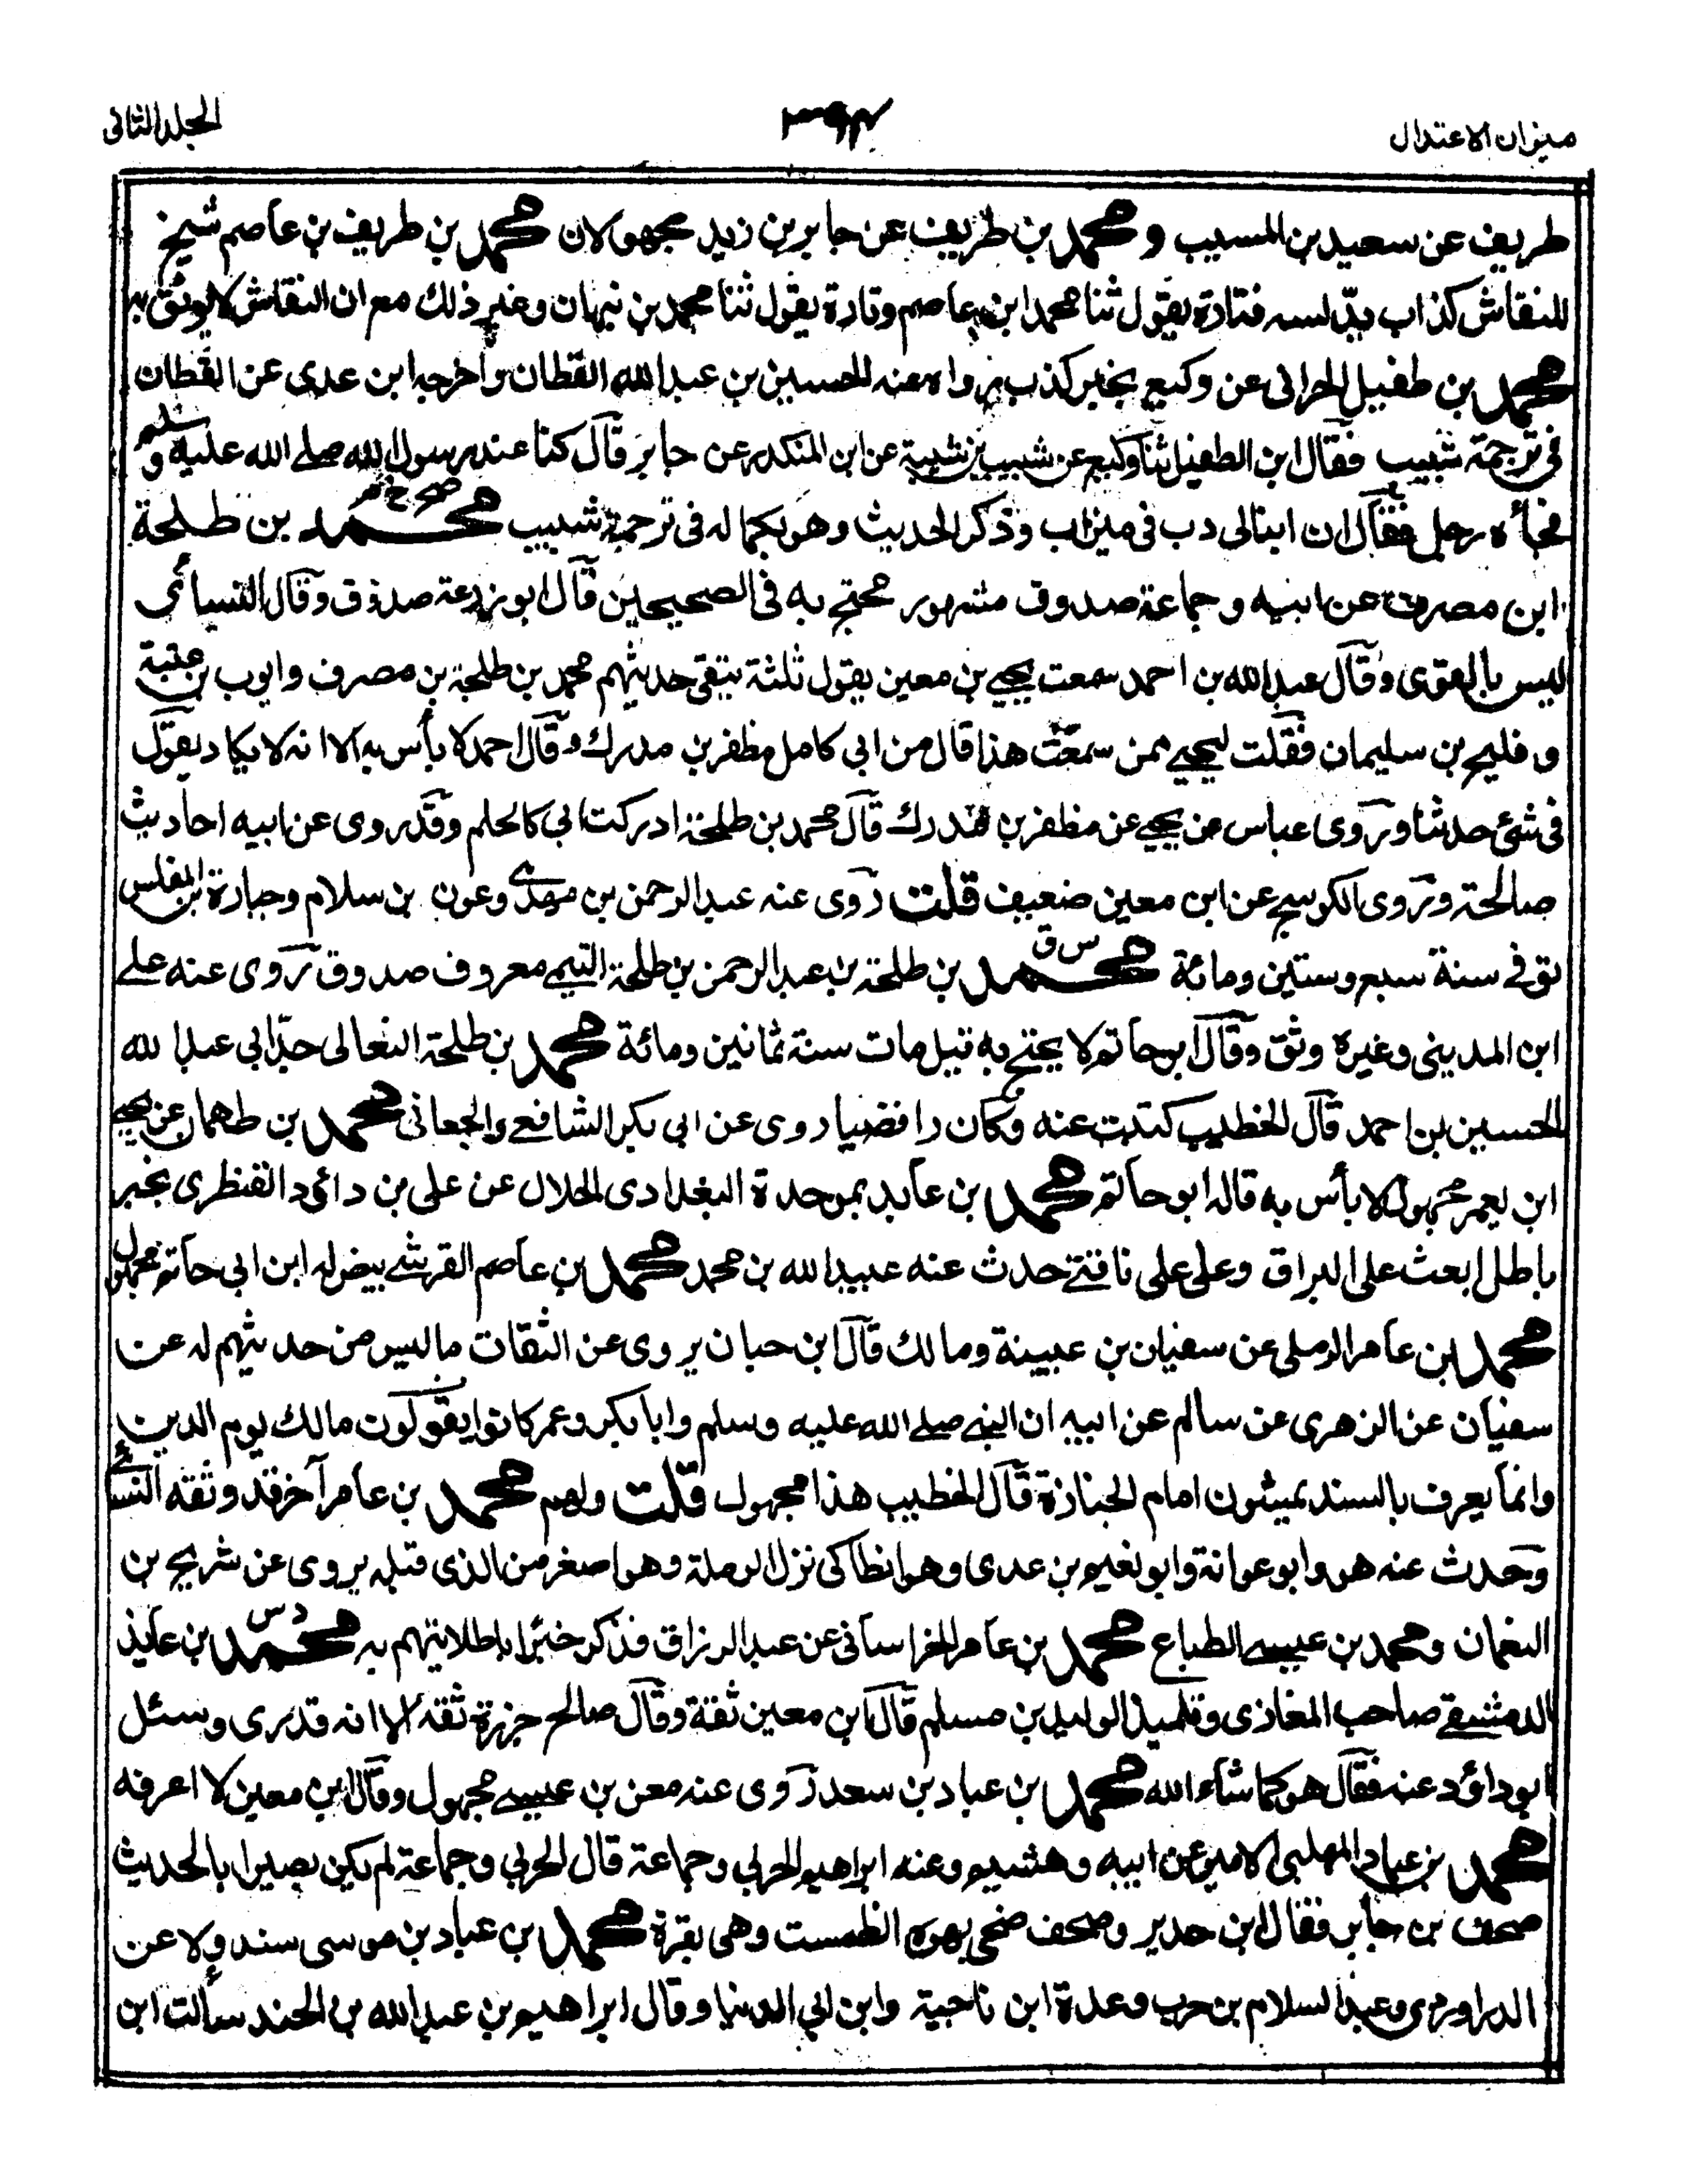 ميزان الاعتدال
٣٩٣
الجلد الثانى
طريف عن سعيد بن المسيب و محمد بن طريف عن جابر بن زيد مجهولان محمد بن طريف بن عاصم شيخ
للنقاش كذاب يدلسه فتارة يقول ثنا محمد ابن عاصم وتارة يقول ثنا محمد بن نبهان وغير ذلك مع ان النقاش لا يوثق به
محمد بن طفيل الحرانى عن وكيع بخبر كذب رواه عنه الحسين بن عبد الله القطان واخرجه ابن عدى عن القطان
فى ترجمة شبيب فقال ابن الطفيل ثنا وكيع عن شبيب بن شيبة عن ابن المنكدر عن جابر قال كنا عند رسول الله صلے الله عليه و سلم
فجاءه رجل فقال ان ابنا لى دب فى ميزاب وذكر الحديث وهو بكماله فى ترجمة شبيب محمد صح خ م بن طلحة
ابن مصرف عن ابيه و جماعة صدوق مشهور محتج به فى الصحيحين قال ابو زرعة صدوق وقال النسائى
ليس بالقوى وقال عبد الله بن احمد سمعت يحيے بن معين يقول ثلثة يتقى حديثهم محمد بن طلحة بن مصرف وايوب بن عتبة
و فليح بن سليمان فقلت ليحيے ممن سمعت هذا قال من ابى كامل مظفر بن مدرك وقال احمد لا بأس به الا انه لا يكاد يقول
فى شئ حدثنا وروى عباس عن يحيے عن مظفر بن مدرك قال محمد بن طلحة ادركت ابى كالحلم وقد روى عن ابيه احاديث
صالحة وروى الكوسج عن ابن معين ضعيف قلت روى عنه عبد الرحمن بن مهدے وعون بن سلام وجبارة بن المغلس
توفى سنة سبع وستين ومائة محمد س ق بن طلحة بن عبد الرحمن بن طلحة التيمے معروف صدوق روى عنه علے
ابن المدينى وغيره وثق وقال ابو حاتم لا يحتج به قيل مات سنة ثمانين ومائة محمد بن طلحة النعالى جد ابى عبد الله
الحسين بن احمد قال الخطيب كتبت عنه وكان رافضيا روى عن ابى بكر الشافعے والجعابى محمد بن طهمان عن يحيے
ابن يعمر مجهول لا بأس به قاله ابو حاتم محمد بن عابد بموحدة البغدادى الخلال عن على بن داؤد القنطرى بخبر
باطل ابعث على البراق وعلى على ناقتے حدث عنه عبيد الله بن محمد محمد بن عاصم القرشے بيض له ابن ابى حاتم مجهول
محمد ابن عامر الرملى عن سفيان بن عيينة ومالك قال ابن حبان يروى عن الثقات ما ليس من حديثهم له عن
سفيان عن الزهرى عن سالم عن ابيه ان النبے صلے الله عليه وسلم وابا بكر وعمر كانوا يقولون مالك يوم الدين
وانما يعرف بالسند يمشون امام الجنازة قال الخطيب هذا مجهول قلت ولهم محمد بن عامر آخر قد وثقه النسائے
وحدث عنه هو وابو عوانة وابو نعيم بن عدى وهو انطاكى نزل الرملة وهو اصغر من الذى قبله يروى عن شريح بن
النعمان ومحمد بن عيسے الطباع محمد بن عامر الخراسانى عن عبد الرزاق فذكر خبرًا باطلا يتهم به محمد د س بن عايذ
الدمشقے صاحب المغازى وتلميذ الوليد بن مسلم قال ابن معين ثقة وقال صالح جزرة ثقة الا انه قدرى وسئل
ابو داؤد عنه فقال هو كما شاء الله محمد بن عباد بن سعد روى عنه معن بن عيسے مجهول وقال ابن معين لا اعرفه
محمد بن عباد المهلبى الامير عن ابيه وهشيم وعنه ابراهيم الحربى وجماعة قال الحربى وجماعة لم يكن بصيرا بالحديث
صحف بن جابر فقال ابن حدير وصحف ضحى بهره انطمست وهى بقرة محمد بن عباد بن موسى سندولا عن
الدراوردى وعبد السلام بن حرب وعدة ابن ناجية وابن ابى الدنيا وقال ابراهيم بن عبد الله بن الجنيد سألت ابن